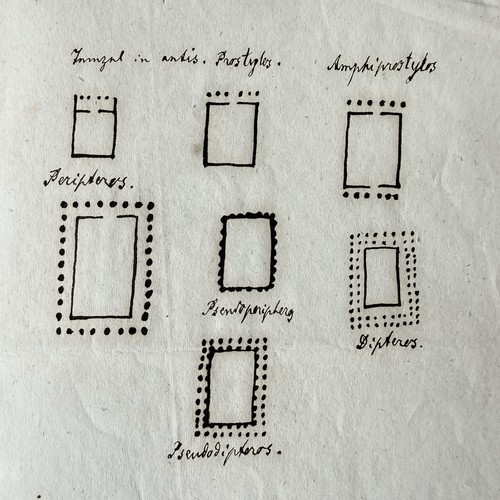 Tempel in antis. Prostylos.
Amphiprostylos
Peripteros.
Pseudoperipteros
Dipteros.
Pseudodipteros.